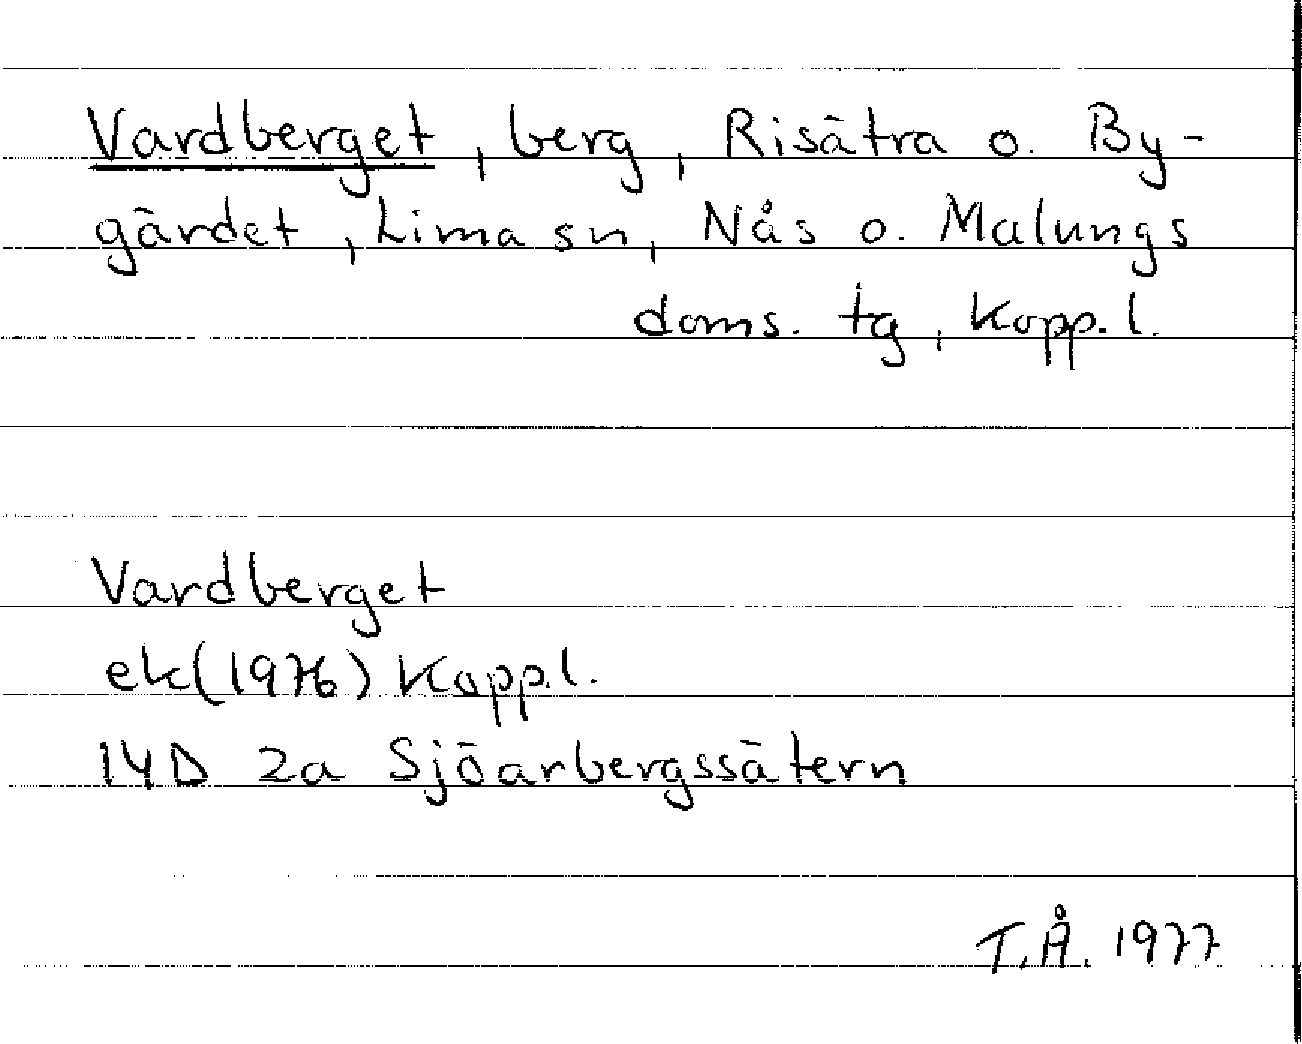 Vardberget, berg, Risätra o. By-
gärdet, Lima sn, Nås o. Malungs
doms. tg, Kopp. l.
Vardberget
ek(1976) Kopp.l.
14D 2a Sjöarbergssätern
T.Å. 1977